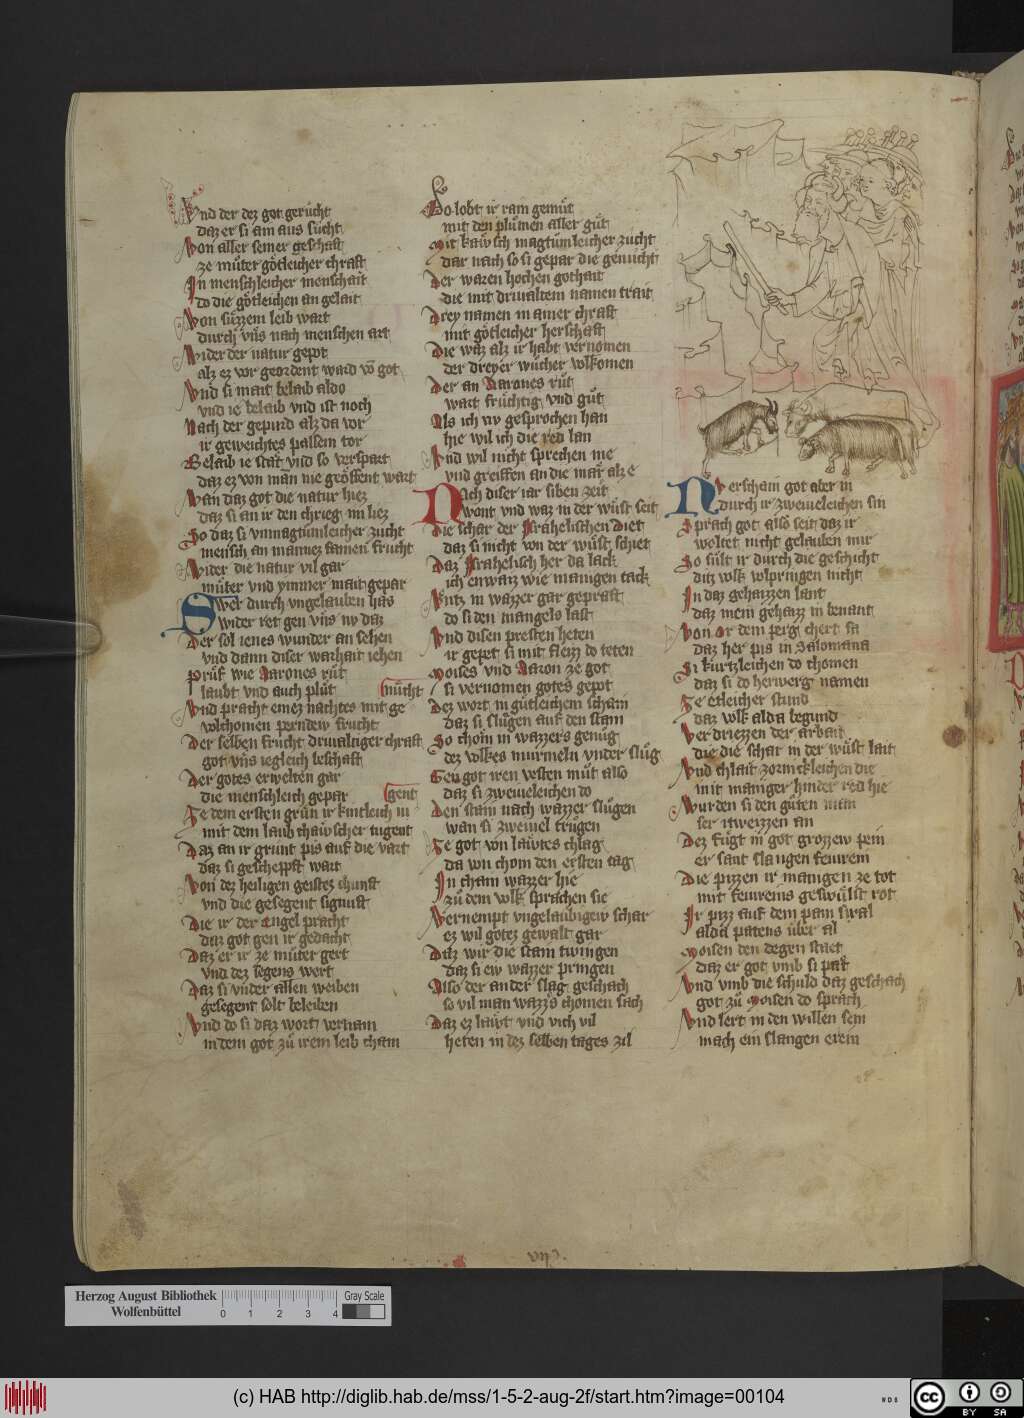 Vnd der dez got gerücht
daz er si am aus sücht
Von aller seiner geschaft
ze müter götleicher chraft
In menschleicher menschait
do die götleichen an gelait
Von süzzem leib wart
durch vns nach menschen art
Wider der natur gepot
alz ez vor geordent ward võ got
Vnd si mait belaib aldo
vnd ie belaib vnd ist noch
Nach der gepurd alz da vor
ir geweichtes pallem tor
Belaib ie stät vnd so verspart
daz ez von man nie gröffent wart
Wan daz got die natur hiez
daz si an ir den chrieg im liez
So daz si vnmagtümleicher zucht
mensch an mannez samen frücht
Wider die natur vil gar
müter vnd ymmer mait gepar
Swer durch vngelauben has
wider ret gen vns nv daz
Der sol ienes wunder an sehen
vnd dann diser warhait iehen
prüf wie Aarones rüt
laubt vnd auch plüt
Vnd pracht einez nachtes mit ge
nücht
volchomen perndew frucht
Der selben frücht drivaltiger chraft
got vns iegleich beschaft
Der gotes erwelten gar
die menschleich gepar
Ze dem ersten grün ir kintleich iu
gent
mit dem laub chawscher tugent
Daz an ir grunt pis auf die vart
daz si geschepft wart
Von dez heiligen geistez chunst
vnd die gesegent sigmust
Die ir der Engel pracht
daz got gen ir gedacht
Daz er ir ze müter gert
vnd dez segens wert
Daz si vnder allen weiben
gesegent solt beleiben
Vnd do si daz wort vernam
in dem got zü irem leib cham
So lobt ir rain gemüt
mit den plümen aller güt
Mit kawsch magtümleicher zucht
dar nach so si gepar die genücht
Der waren hochen gothait
die mit drivaltem namen trait
Drey namen in ainer chraft
mit götleicher herschaft
Die waz alz ir habt vernomen
der dreyer wücher volkomen
Der an Aarones rüt
wart früchtig vnd güt
Als ich nv gesprochen han
hie wil ich die red lan
Vnd wil nicht sprechen me
vnd greiffen an die mär alz e
Nach diser iar siben zeit
wont vnd waz in der wüst seit
Die schar der Israhelischen diet
daz si nicht von der wüst schiet
Daz Israhelisch her da lack
ich enwaiz wie manigen tack
Nutz in wazzer gar geprast
do si den mangels last
Vnd disen presten heten
ir gepet si mit fleizz do teten
Moises vnd Aaron ze got
si vernomen gotes gepot
Dez wort in gütleichem schain
daz si slügen auf den stain
So chom in wazzers genüg
dez volkes murmeln vnder slüg
Gen got iren vesten müt also
daz si zweiueleichen do
Den stain nach wazzer slügen
wan si zweiuel trügen
Ze got von läwtes chlag
da von chom den ersten tag
In cham wazzer hie
zü dem volk sprachen sie
Vernempt vngelaubigew schar
ez wil gotez gewalt gar
Daz wir die stain twingen
daz si ew wazzer pringen
Also der ander slag geschach
so vil man wazzs chomen sach
Daz ez läwt vnd vich vil
heten in dez selben tages zil
Nv erscham got aber in
durch ir zweiueleichen sin
Sprach got also seit daz ir
woltet nicht gelauben mir
So sült ir durch die geschicht
ditz volk volpringen nicht
In daz gehaizzen lant
daz mein gehaizz in benant
Von Or dem perg chert sa
daz her pis in Salomana
Si kürtzleichen do chomen
daz si do herwerg namen
Ze etleicher stund
daz volk alda begund
Verdriezzen der arbait
die die schar in der wüst lait
Vnd chlait zornickleichen die
mit maniger hinder red hie
Wurden si den güten man
ser itweizzen an
Dez fügt in got grozzew pein
er sant slangen fewrein
Die pizzen ir manigen ze tot
mit fewreins geswülst rot
Ir pizz auf dem pain swal
alda patens über al
Moisen den degen staet
daz er got vmb si pät
Vnd vmb die schuld daz geschach
got zü Moisen do sprach
Vnd lert in den willen sein
mach ein slangen erein
viij
Herzog August Bibliothek
Wolfenbüttel
0 1 2 3 4
Gray Scale
(c) HAB http://diglib.hab.de/mss/1-5-2-aug-2f/start.htm?image=00104
WD6
CC BY SA